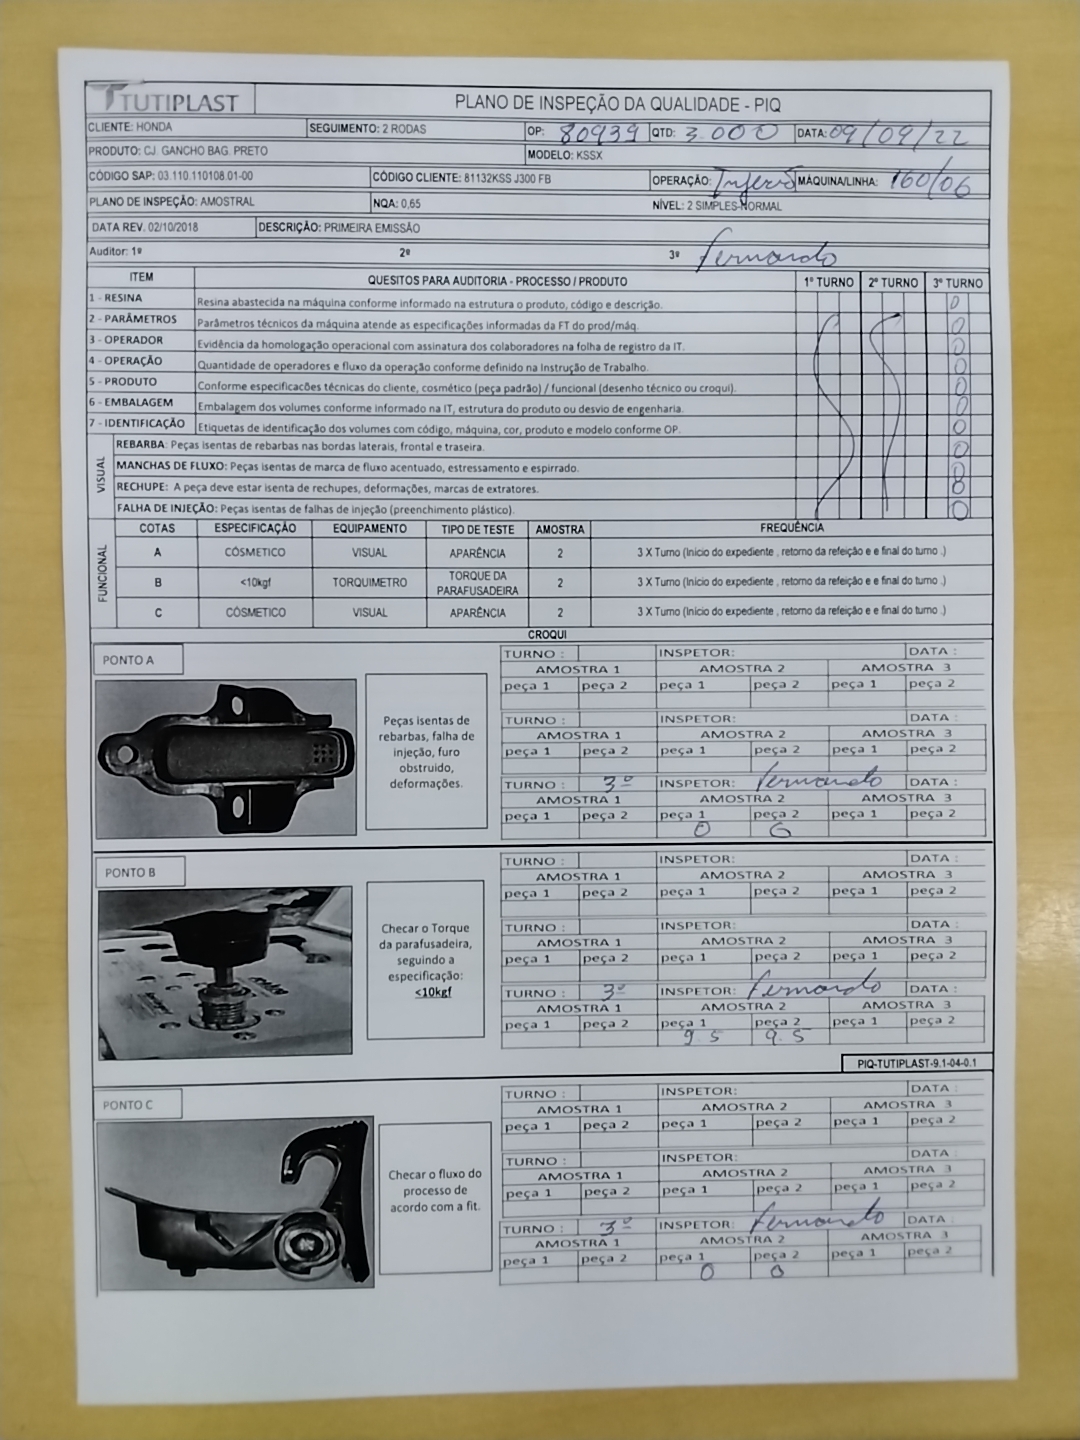 TUTIPLAST PLANO DE INSPEÇÃO DA QUALIDADE - PIQ
CLIENTE: HONDA SEGUIMENTO: 2 RODAS OP: 80939 QTD: 3.000 DATA: 09/09/22
PRODUTO: CJ. GANCHO BAG. PRETO MODELO: KSSX
CÓDIGO SAP: 03.110.110108.01-00 CÓDIGO CLIENTE: 81132KSS J300 FB OPERAÇÃO: MÁQUINA/LINHA: 160/06
PLANO DE INSPEÇÃO: AMOSTRAL NQA: 0,65 NÍVEL: 2 SIMPLES-NORMAL
DATA REV. 02/10/2018 DESCRIÇÃO: PRIMEIRA EMISSÃO
Auditor: 1º 2º 3º Fernando
ITEM QUESITOS PARA AUDITORIA - PROCESSO / PRODUTO 1º TURNO 2º TURNO 3º TURNO
1 - RESINA Resina abastecida na máquina conforme informado na estrutura o produto, código e descrição. 0
2 - PARÂMETROS Parâmetros técnicos da máquina atende as especificações informadas da FT do prod/máq. 0
3 - OPERADOR Evidência da homologação operacional com assinatura dos colaboradores na folha de registro da IT. 0
4 - OPERAÇÃO Quantidade de operadores e fluxo da operação conforme definido na Instrução de Trabalho. 0
5 - PRODUTO Conforme especificacões técnicas do cliente, cosmético (peça padrão) / funcional (desenho técnico ou croqui). 0
6 - EMBALAGEM Embalagem dos volumes conforme informado na IT, estrutura do produto ou desvio de engenharia. 0
7 - IDENTIFICAÇÃO Etiquetas de identificação dos volumes com código, máquina, cor, produto e modelo conforme OP. 0
VISUAL
REBARBA: Peças isentas de rebarbas nas bordas laterais, frontal e traseira. 0
MANCHAS DE FLUXO: Peças isentas de marca de fluxo acentuado, estressamento e espirrado. 0
RECHUPE: A peça deve estar isenta de rechupes, deformações, marcas de extratores. 0
FALHA DE INJEÇÃO: Peças isentas de falhas de injeção (preenchimento plástico). 0
FUNCIONAL
COTAS ESPECIFICAÇÃO EQUIPAMENTO TIPO DE TESTE AMOSTRA FREQUÊNCIA
A CÓSMETICO VISUAL APARÊNCIA 2 3 X Turno (Inicio do expediente , retorno da refeição e e final do turno .)
B <10kgf TORQUIMETRO TORQUE DA PARAFUSADEIRA 2 3 X Turno (Inicio do expediente , retorno da refeição e e final do turno .)
C CÓSMETICO VISUAL APARÊNCIA 2 3 X Turno (Inicio do expediente , retorno da refeição e e final do turno .)
CROQUI
PONTO A
Peças isentas de
rebarbas, falha de
injeção, furo
obstruido,
deformações.
TURNO : INSPETOR: DATA :
AMOSTRA 1 AMOSTRA 2 AMOSTRA 3
peça 1 peça 2 peça 1 peça 2 peça 1 peça 2
TURNO : INSPETOR: DATA :
AMOSTRA 1 AMOSTRA 2 AMOSTRA 3
peça 1 peça 2 peça 1 peça 2 peça 1 peça 2
TURNO : 3º INSPETOR: Fernando DATA :
AMOSTRA 1 AMOSTRA 2 AMOSTRA 3
peça 1 peça 2 peça 1 peça 2 peça 1 peça 2
0
PONTO B
Checar o Torque
da parafusadeira,
seguindo a
especificação:
<10kgf
TURNO : INSPETOR: DATA :
AMOSTRA 1 AMOSTRA 2 AMOSTRA 3
peça 1 peça 2 peça 1 peça 2 peça 1 peça 2
TURNO : INSPETOR: DATA :
AMOSTRA 1 AMOSTRA 2 AMOSTRA 3
peça 1 peça 2 peça 1 peça 2 peça 1 peça 2
TURNO : 3º INSPETOR: Fernando DATA :
AMOSTRA 1 AMOSTRA 2 AMOSTRA 3
peça 1 peça 2 peça 1 peça 2 peça 1 peça 2
9.5 9.5
PIQ-TUTIPLAST-9.1-04-0.1
PONTO C
Checar o fluxo do
processo de
acordo com a fit.
TURNO : INSPETOR: DATA :
AMOSTRA 1 AMOSTRA 2 AMOSTRA 3
peça 1 peça 2 peça 1 peça 2 peça 1 peça 2
TURNO : INSPETOR: DATA
AMOSTRA 1 AMOSTRA 2 AMOSTRA 3
peça 1 peça 2 peça 1 peça 2 peça 1 peça 2
TURNO : 3º INSPETOR: Fernando DATA :
AMOSTRA 1 AMOSTRA 2 AMOSTRA 3
peça 1 peça 2 peça 1 peça 2 peça 1 peça 2
0 0